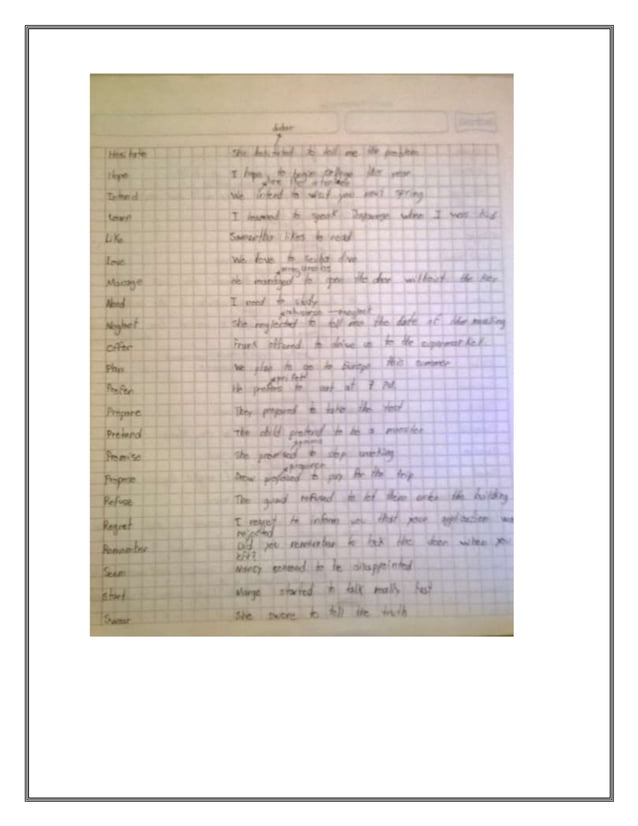 dudar
Hesitate She hesitated to tell me the problem
Hope I hope to begin college this year
Intend We intend to visit you next spring
Learn I learned to speak when I was kid
Like Samantha likes to read
Love We love to scuba dive
Manage He managed to open the door without the key
Need I need to study
Neglect She neglected to tell me the date of the meeting
Offer Frank offered to drive us to the supermarket
Plan We plan to go to Europe this summer
Prefer He prefers to eat at 7 PM.
Prepare They prepared to take the test
Pretend The child pretend to be a monster
Promise She promised to stop smoking
Propose Drew proposed to pay for the trip
Refuse The guard refused to let them enter the building
Regret I regret to inform you that your application was
rejected
Remember Did you remember to lock the door when you
left?
Seem Nancy seemed to be disappointed
Start Marge started to talk really fast
Swear She swore to tell the truth